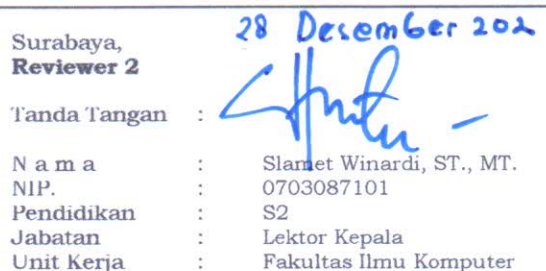 Surabaya, 28 Desember 202
Reviewer 2
Tanda Tangan :
N a m a : Slamet Winardi, ST., MT.
NIP. : 0703087101
Pendidikan : S2
Jabatan : Lektor Kepala
Unit Kerja : Fakultas Ilmu Komputer